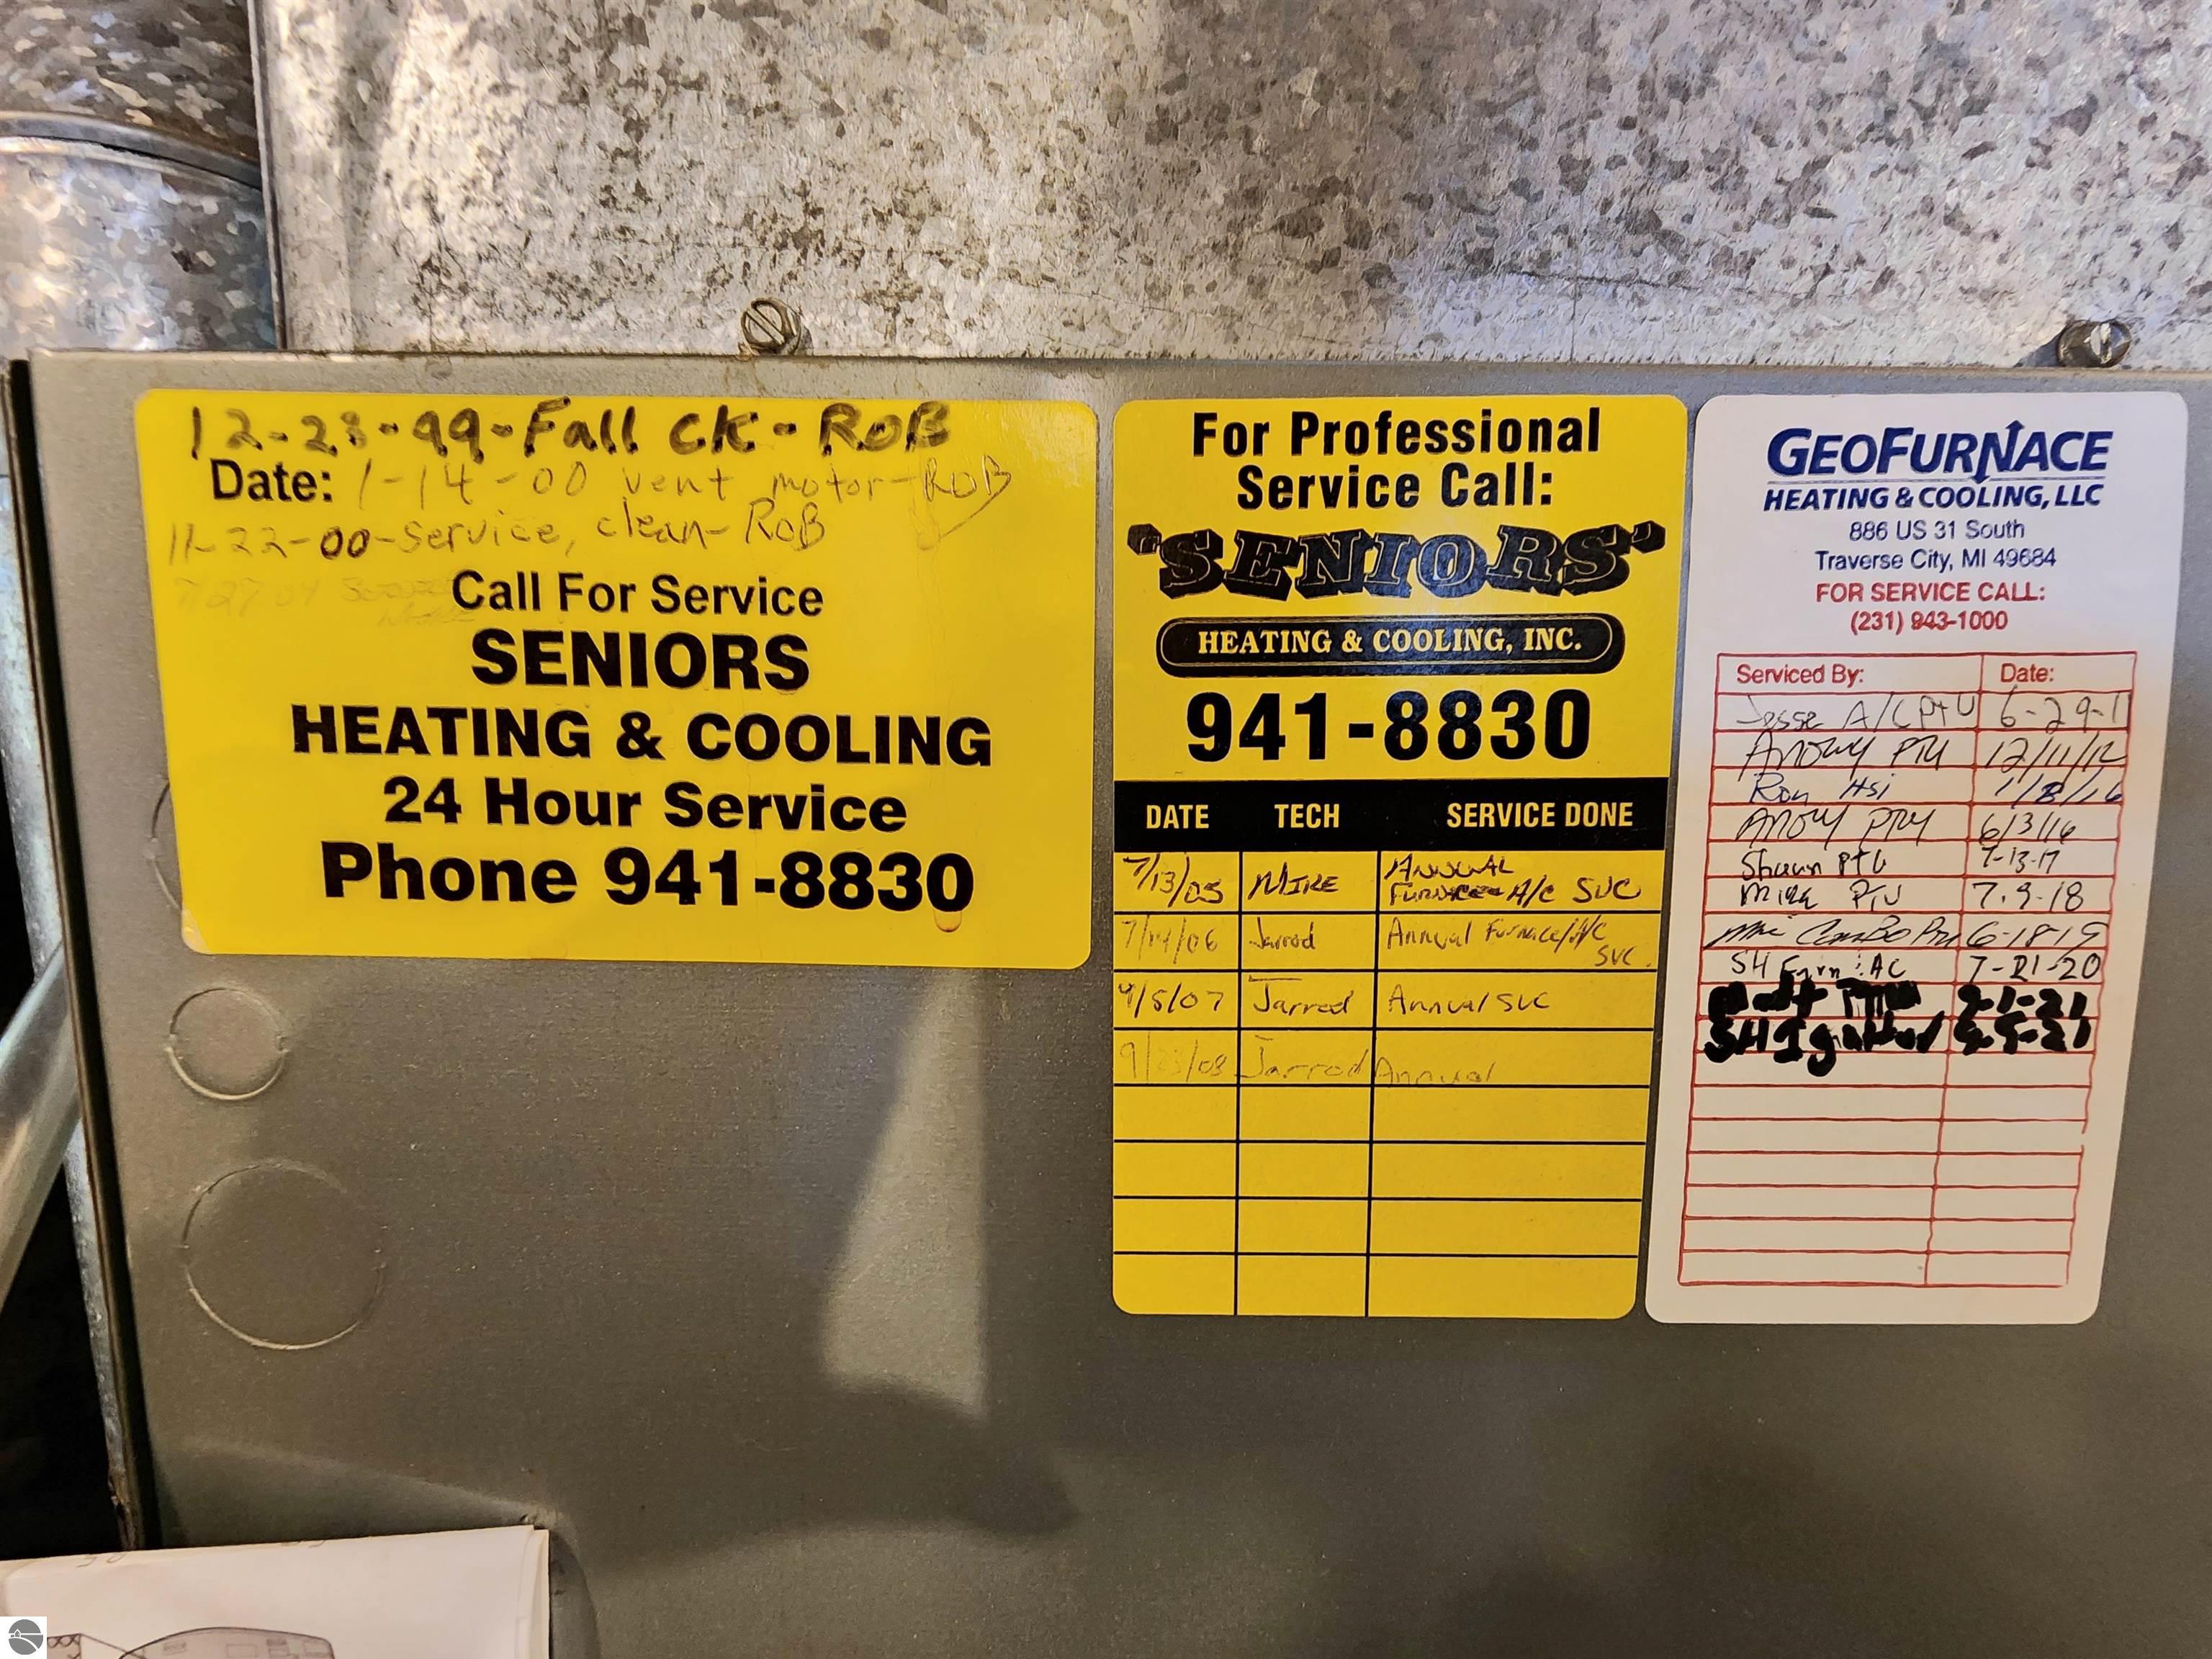 12-23-99-Fall CK-ROB
Date: 1-14-00 vent motor-ROB
11-22-00-service, clean-ROB
7 27 04
Call For Service
SENIORS
HEATING & COOLING
24 Hour Service
Phone 941-8830
For Professional
Service Call:
"SENIORS"
HEATING & COOLING, INC.
941-8830
DATE TECH SERVICE DONE
7/13/05 MIKE ANNUAL
FURNACE A/C SVC
7/14/06 Jarrod Annual Furnace/A/C
SVC.
4/5/07 Jarrod Annual SVC
9/ /08 Jarrod Annual
GEOFURNACE
HEATING & COOLING, LLC
886 US 31 South
Traverse City, MI 49684
FOR SERVICE CALL:
(231) 943-1000
Serviced By: Date:
Jesse A/C PTU 6-29-1
12/11/12
Ron Hsi
6/3/16
Shawn PTU 7-13-17
Mike PTU 7.9-18
Combo 6-18-19
SH Furn AC 7-21-20
Matt
SH Ignitor